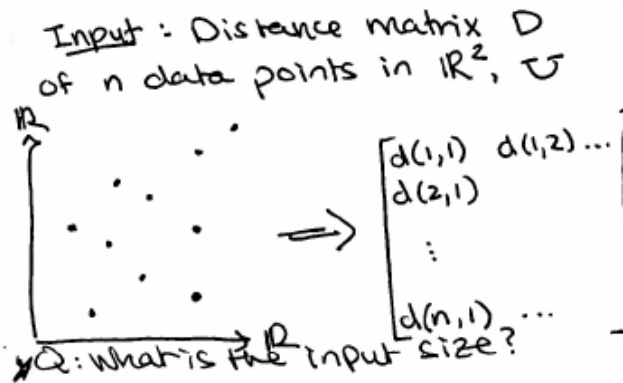 Input : Distance matrix D
of n data points in ℝ², ℧
ℝ
d(1,1) d(1,2) ...
d(2,1)
⋮
d(n,1) ...
ℝ
Q: What is the input size?